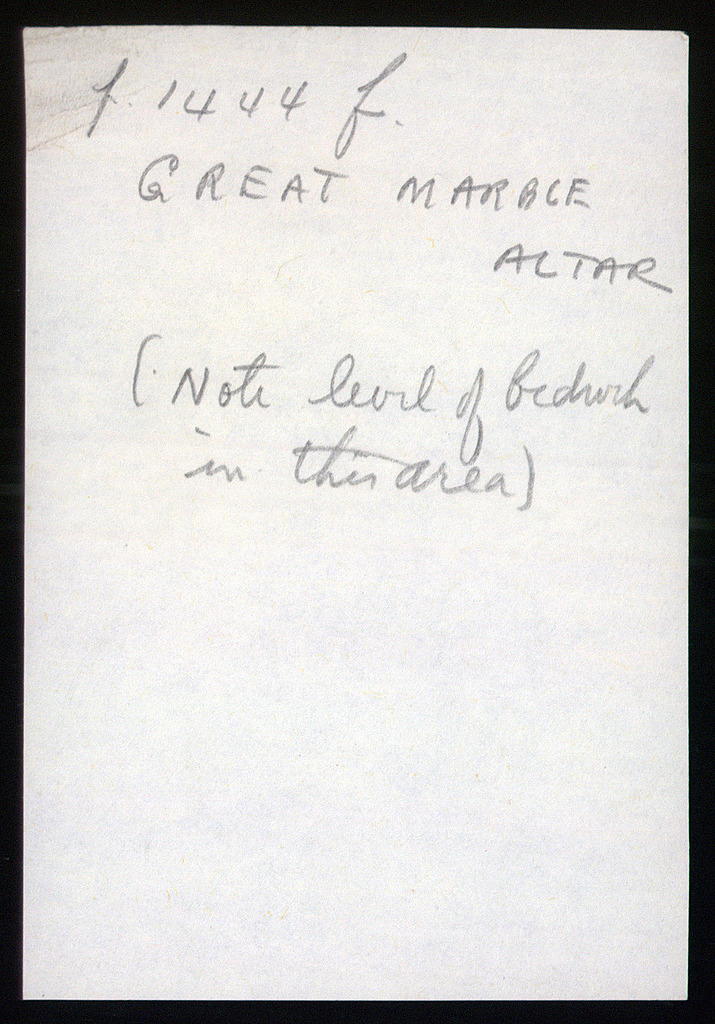 p. 1444 f.
GREAT MARBLE
ALTAR
(Note level of bedrock
in this area)